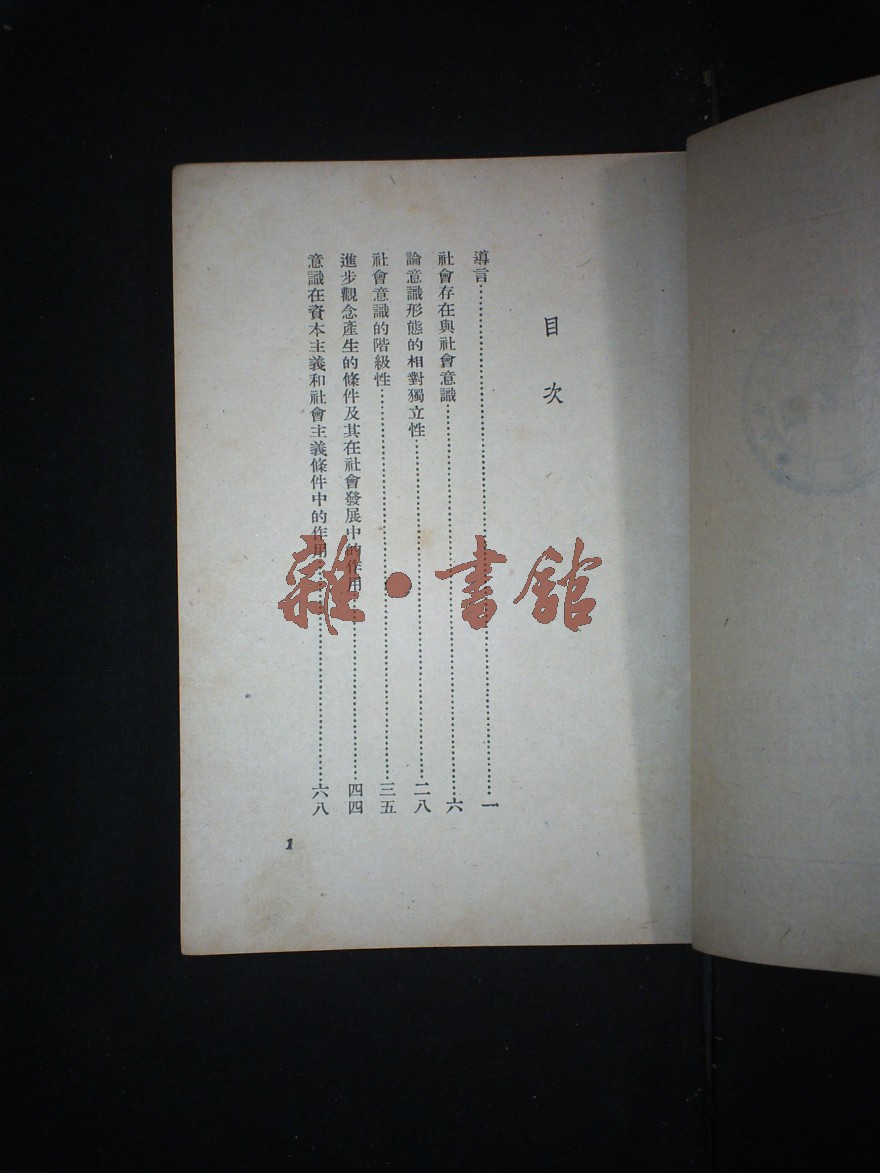 目次
導言……一
社會存在與社會意識……六
論意識形態的相對獨立性……二八
社會意識的階級性……三五
進步觀念產生的條件及其在社會發展中的作用……四四
意識在資本主義和社會主義條件中的作用……六八
1
雜·書館